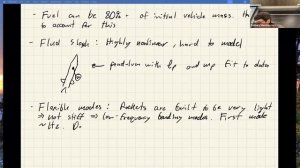 - Fuel can be 80%+ of initial vehicle mass.
to account for this
- Fluid slosh: Highly nonlinear, hard to model
← pendulum with lp and mp fit to data
- Flexible modes: Rockets are built to be very light
⇒ not stiff ⇒ low-frequency bending modes. First mode
~ Hz.